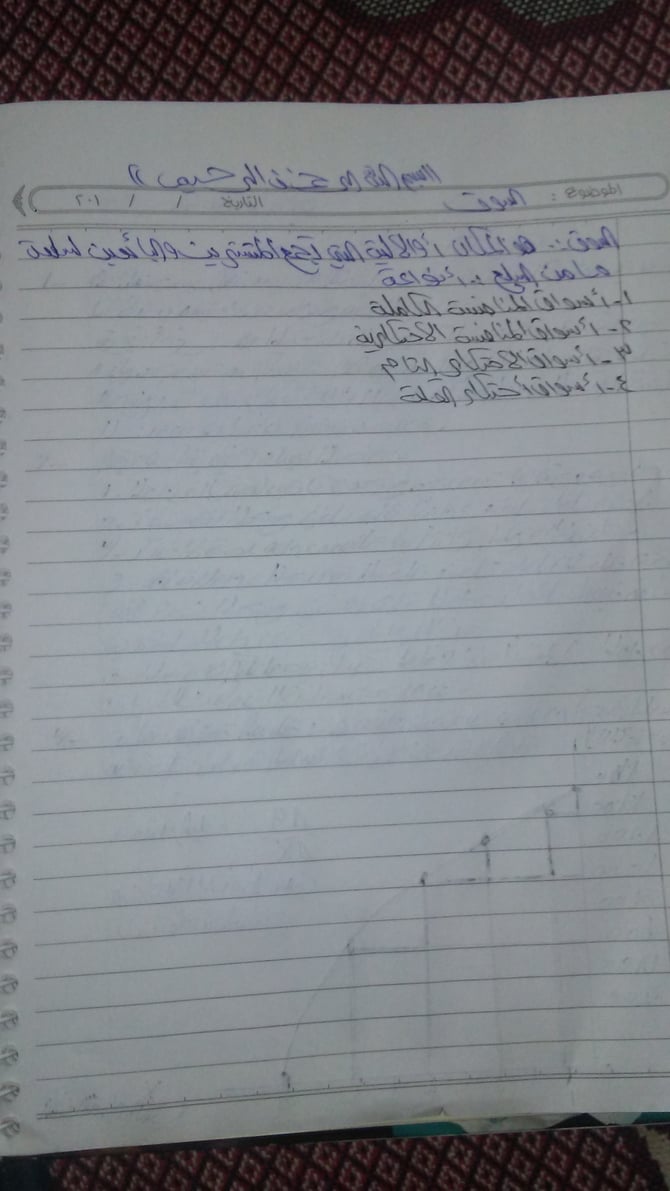 بسم الله الرحمن الرحيم
الموضوع : السوق التاريخ / / ٢٠١
السوق :- هو المكان أو الآلية التي تجمع المشترين والبائعين لسلعة
ما من السلع :- أنواعة
١- أسواق المنافسة الكاملة
٢- أسواق المنافسة الاحتكارية
٣- أسواق الاحتكار التام
٤- أسواق أحتكار القلة